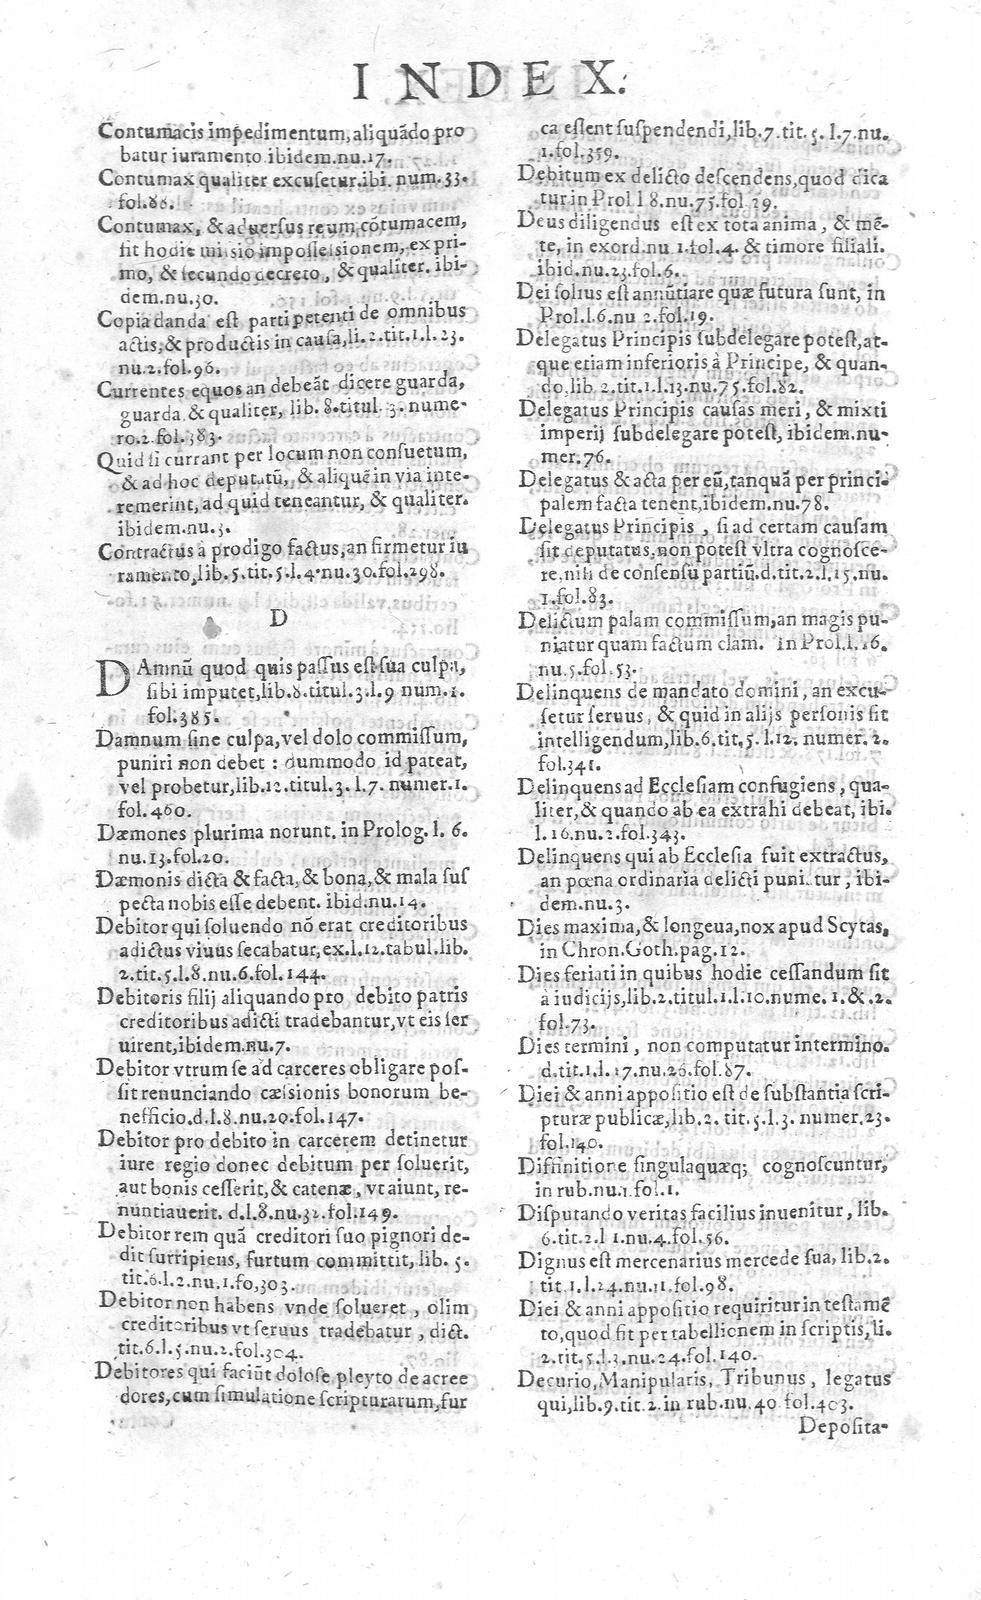 INDEX.
Contumacis impedimentum, aliquãdo pro
batur iuramento ibidem.nu.17.
Contumax qualiter excusetur.ibi. num.33.
fol.88.
Contumax, & aduersus reum cõtumacem,
fit hodie missio impossessionem, ex pri-
mo, & secundo decreto, & qualiter. ibi-
dem.nu.30.
Copia danda est parti petenti de omnibus
actis, & productis in causa, li.2.tit.1.l.23.
nu.2.fol.96.
Currentes equos an debeãt dicere guarda,
guarda, & qualiter, lib. 8.titul.3. nume-
ro.2.fol.383.
Quid si currant per locum non consuetum,
& ad hoc deputatũ, & aliquẽ in via inte-
remerint, ad quid teneantur, & qualiter.
ibidem.nu.3.
Contractus a prodigo factus, an firmetur iu
ramento, lib.5.tit.5.l.4.nu.30.fol.298.
D
DAmnũ quod quis passus est sua culpa,
sibi imputet, lib.8.titul.3.l.9 num.1.
fol.385.
Damnum sine culpa, vel dolo commissum,
puniri non debet : dummodo id pateat,
vel probetur, lib.12.titul.3.l.7. numer.1.
fol.460.
Dæmones plurima norunt. in Prolog. l. 6.
nu.13.fol.20.
Dæmonis dicta & facta, & bona, & mala sus
pecta nobis esse debent. ibid.nu.14.
Debitor qui soluendo nõ erat creditoribus
adictus viuus secabatur, ex.l.12.tabul.lib.
2.tit.5.l.8.nu.6.fol.144.
Debitoris filij aliquando pro debito patris
creditoribus adicti tradebantur, vt eis ser
uirent, ibidem.nu.7.
Debitor vtrum se ad carceres obligare pos-
sit renunciando cæssionis bonorum be-
nefficio.d.l.8.nu.20.fol.147.
Debitor pro debito in carcerem detinetur
iure regio donec debitum per soluerit,
aut bonis cesserit, & catenæ, vt aiunt, re-
nuntiauerit. d.l.8.nu.32.fol.149.
Debitor rem quã creditori suo pignori de-
dit surripiens, furtum committit, lib. 5.
tit.6.l.2.nu.1.fo,303.
Debitor non habens vnde solueret, olim
creditoribus vt seruus tradebatur, dict.
tit.6.l.5.nu.2.fol.304.
Debitores qui faciũt dolose pleyto de acree
dores, cum simulatione scripturarum, fur
ca essent suspendendi, lib.7.tit.5.l.7.nu.
1.fol.359.
Debitum ex delicto descendens, quod dica
tur in Prol l 8.nu.75.fol 29.
Deus diligendus est ex tota anima, & mẽ-
te, in exord.nu 1.fol.4. & timore filiali.
ibid.nu.23.fol.6.
Dei solius est annũtiare quæ futura sunt, in
Prol.l.6.nu 2.fol.19.
Delegatus Principis subdelegare potest, at-
que etiam inferioris à Principe, & quan-
do, lib 2.tit.1.l.13.nu.75.fol.82.
Delegatus Principis causas meri, & mixti
imperij subdelegare potest, ibidem.nu-
mer.76.
Delegatus & acta per eũ, tanquã per princi-
palem facta tenent, ibidem.nu.78.
Delegatus Principis, si ad certam causam
sit deputatus, non potest vltra cognosce-
re, nisi de consensu partiũ.d.tit.2.l.15.nu.
1.fol.83.
Delictum palam commissum, an magis pu-
niatur quam factum clam. in Prol.l.16.
nu.5.fol.53.
Delinquens de mandato domini, an excu-
setur seruus, & quid in alijs personis sit
intelligendum, lib.6.tit.5.l.12. numer.2.
fol.341.
Delinquens ad Ecclesiam confugiens, qua-
liter, & quando ab ea extrahi debeat, ibi.
l.16.nu.2.fol.343.
Delinquens qui ab Ecclesia fuit extractus,
an pœna ordinaria delicti punitur, ibi-
dem.nu.3.
Dies maxima, & longeua, nox apud Scytas,
in Chron.Goth.pag.12.
Dies feriati in quibus hodie cessandum sit
à iudicijs, lib.2.titul.1.l.10.nume.1.&.2.
fol.73.
Dies termini, non computatur intermino.
d.tit.1.l.17.nu.26.fol.87.
Diei & anni appositio est de substantia scri-
pturæ publicæ, lib.2. tit.5.l.3. numer.23.
fol.140.
Diffinitione singulaquæq; cognoscuntur,
in rub.nu.1.fol.1.
Disputando veritas facilius inuenitur, lib.
6.tit.2.l 1.nu.4.fol.56.
Dignus est mercenarius mercede sua, lib.2.
tit.1.l.24.nu.11.fol.98.
Diei & anni appositio requiritur in testamẽ
to, quod fit per tabellionem in scriptis, li.
2.tit.5.l.3.nu.24.fol.140.
Decurio, Manipularis, Tribunus, legatus
qui, lib.9.tit.2.in rub.nu.40 fol.403.
Deposita-